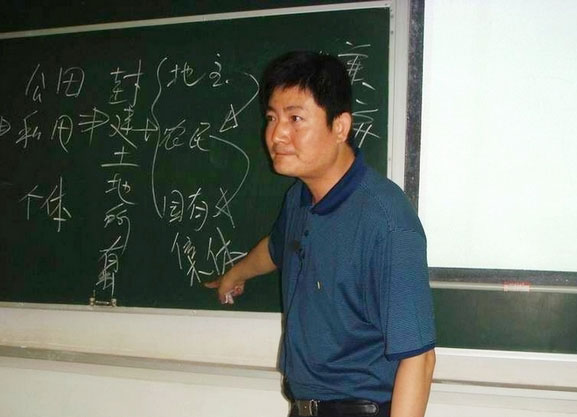 公田
私田
个体
封建土地所有制
地主
农民
国有
集体